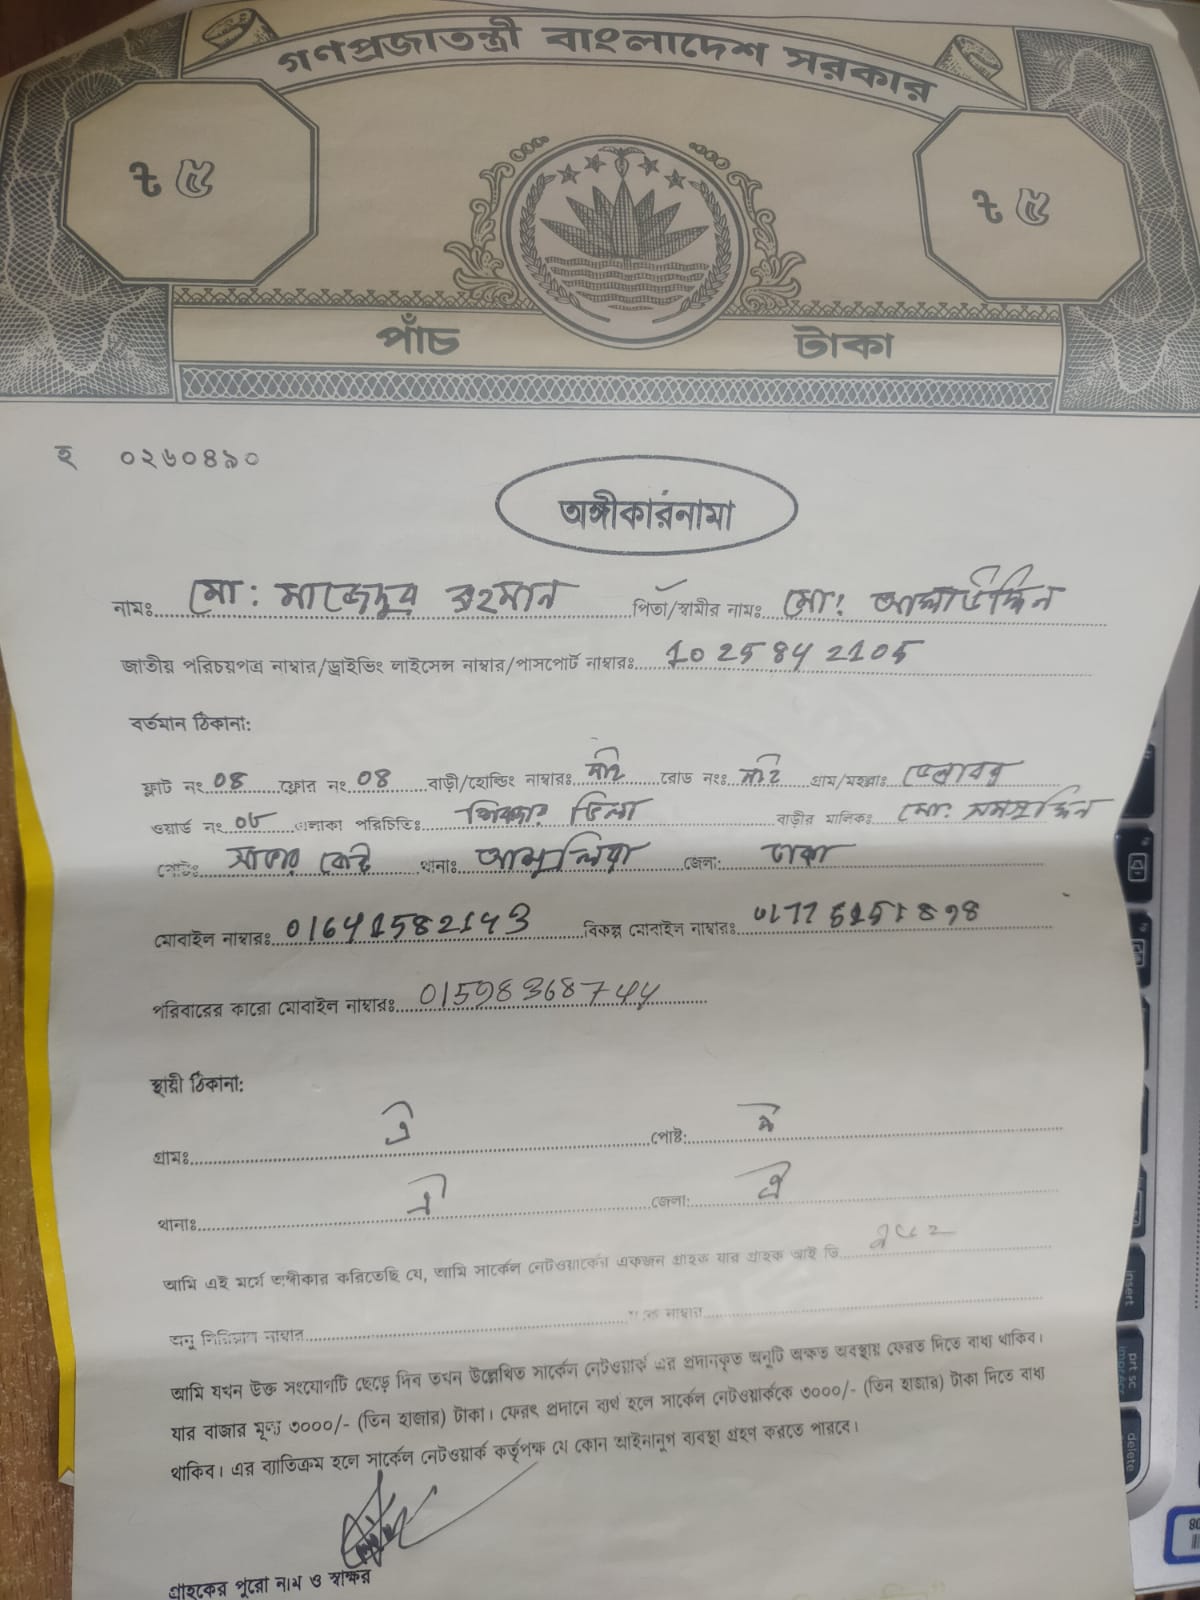 গণপ্রজাতন্ত্রী বাংলাদেশ সরকার
৳ ৫ ৳ ৫
পাঁচ টাকা
হ ০২৬০৪৯০
অঙ্গীকারনামা
নামঃ মো: মাজেদুর রহমান পিতা/স্বামীর নামঃ মো: আলাউদ্দিন
জাতীয় পরিচয়পত্র নাম্বার/ড্রাইভিং লাইসেন্স নাম্বার/পাসপোর্ট নাম্বারঃ 1025842105
বর্তমান ঠিকানা:
ফ্লাট নং 08 ফ্লোর নং 08 বাড়ী/হোল্ডিং নাম্বারঃ নাই রোড নংঃ নাই গ্রাম/মহল্লাঃ
ওয়ার্ড নং 08 এলাকা পরিচিতিঃ ভিলা বাড়ীর মালিকঃ মো: সমসুদ্দিন
পোষ্টঃ থানাঃ আশুলিয়া জেলা: ঢাকা
মোবাইল নাম্বারঃ 01641582143 বিকল্প মোবাইল নাম্বারঃ
পরিবারের কারো মোবাইল নাম্বারঃ 01598368744
স্থায়ী ঠিকানা:
গ্রামঃ ঐ পোষ্ট: ঐ
থানাঃ ঐ জেলা: ঐ
আমি এই মর্মে অঙ্গীকার করিতেছি যে, আমি সার্কেল নেটওয়ার্কের একজন গ্রাহক যার গ্রাহক আই ডি
অনু সিরিয়াল নাম্বার নাম্বার
আমি যখন উক্ত সংযোগটি ছেড়ে দিব তখন উল্লেখিত সার্কেল নেটওয়ার্ক এর প্রদানকৃত অনুটি অক্ষত অবস্থায় ফেরত দিতে বাধ্য থাকিব।
যার বাজার মূল্য ৩০০০/- (তিন হাজার) টাকা। ফেরৎ প্রদানে ব্যর্থ হলে সার্কেল নেটওয়ার্ককে ৩০০০/- (তিন হাজার) টাকা দিতে বাধ্য
থাকিব। এর ব্যাতিক্রম হলে সার্কেল নেটওয়ার্ক কর্তৃপক্ষ যে কোন আইনানুগ ব্যবস্থা গ্রহণ করতে পারবে।
গ্রাহকের পুরো নাম ও স্বাক্ষর
insert
prt sc
delete